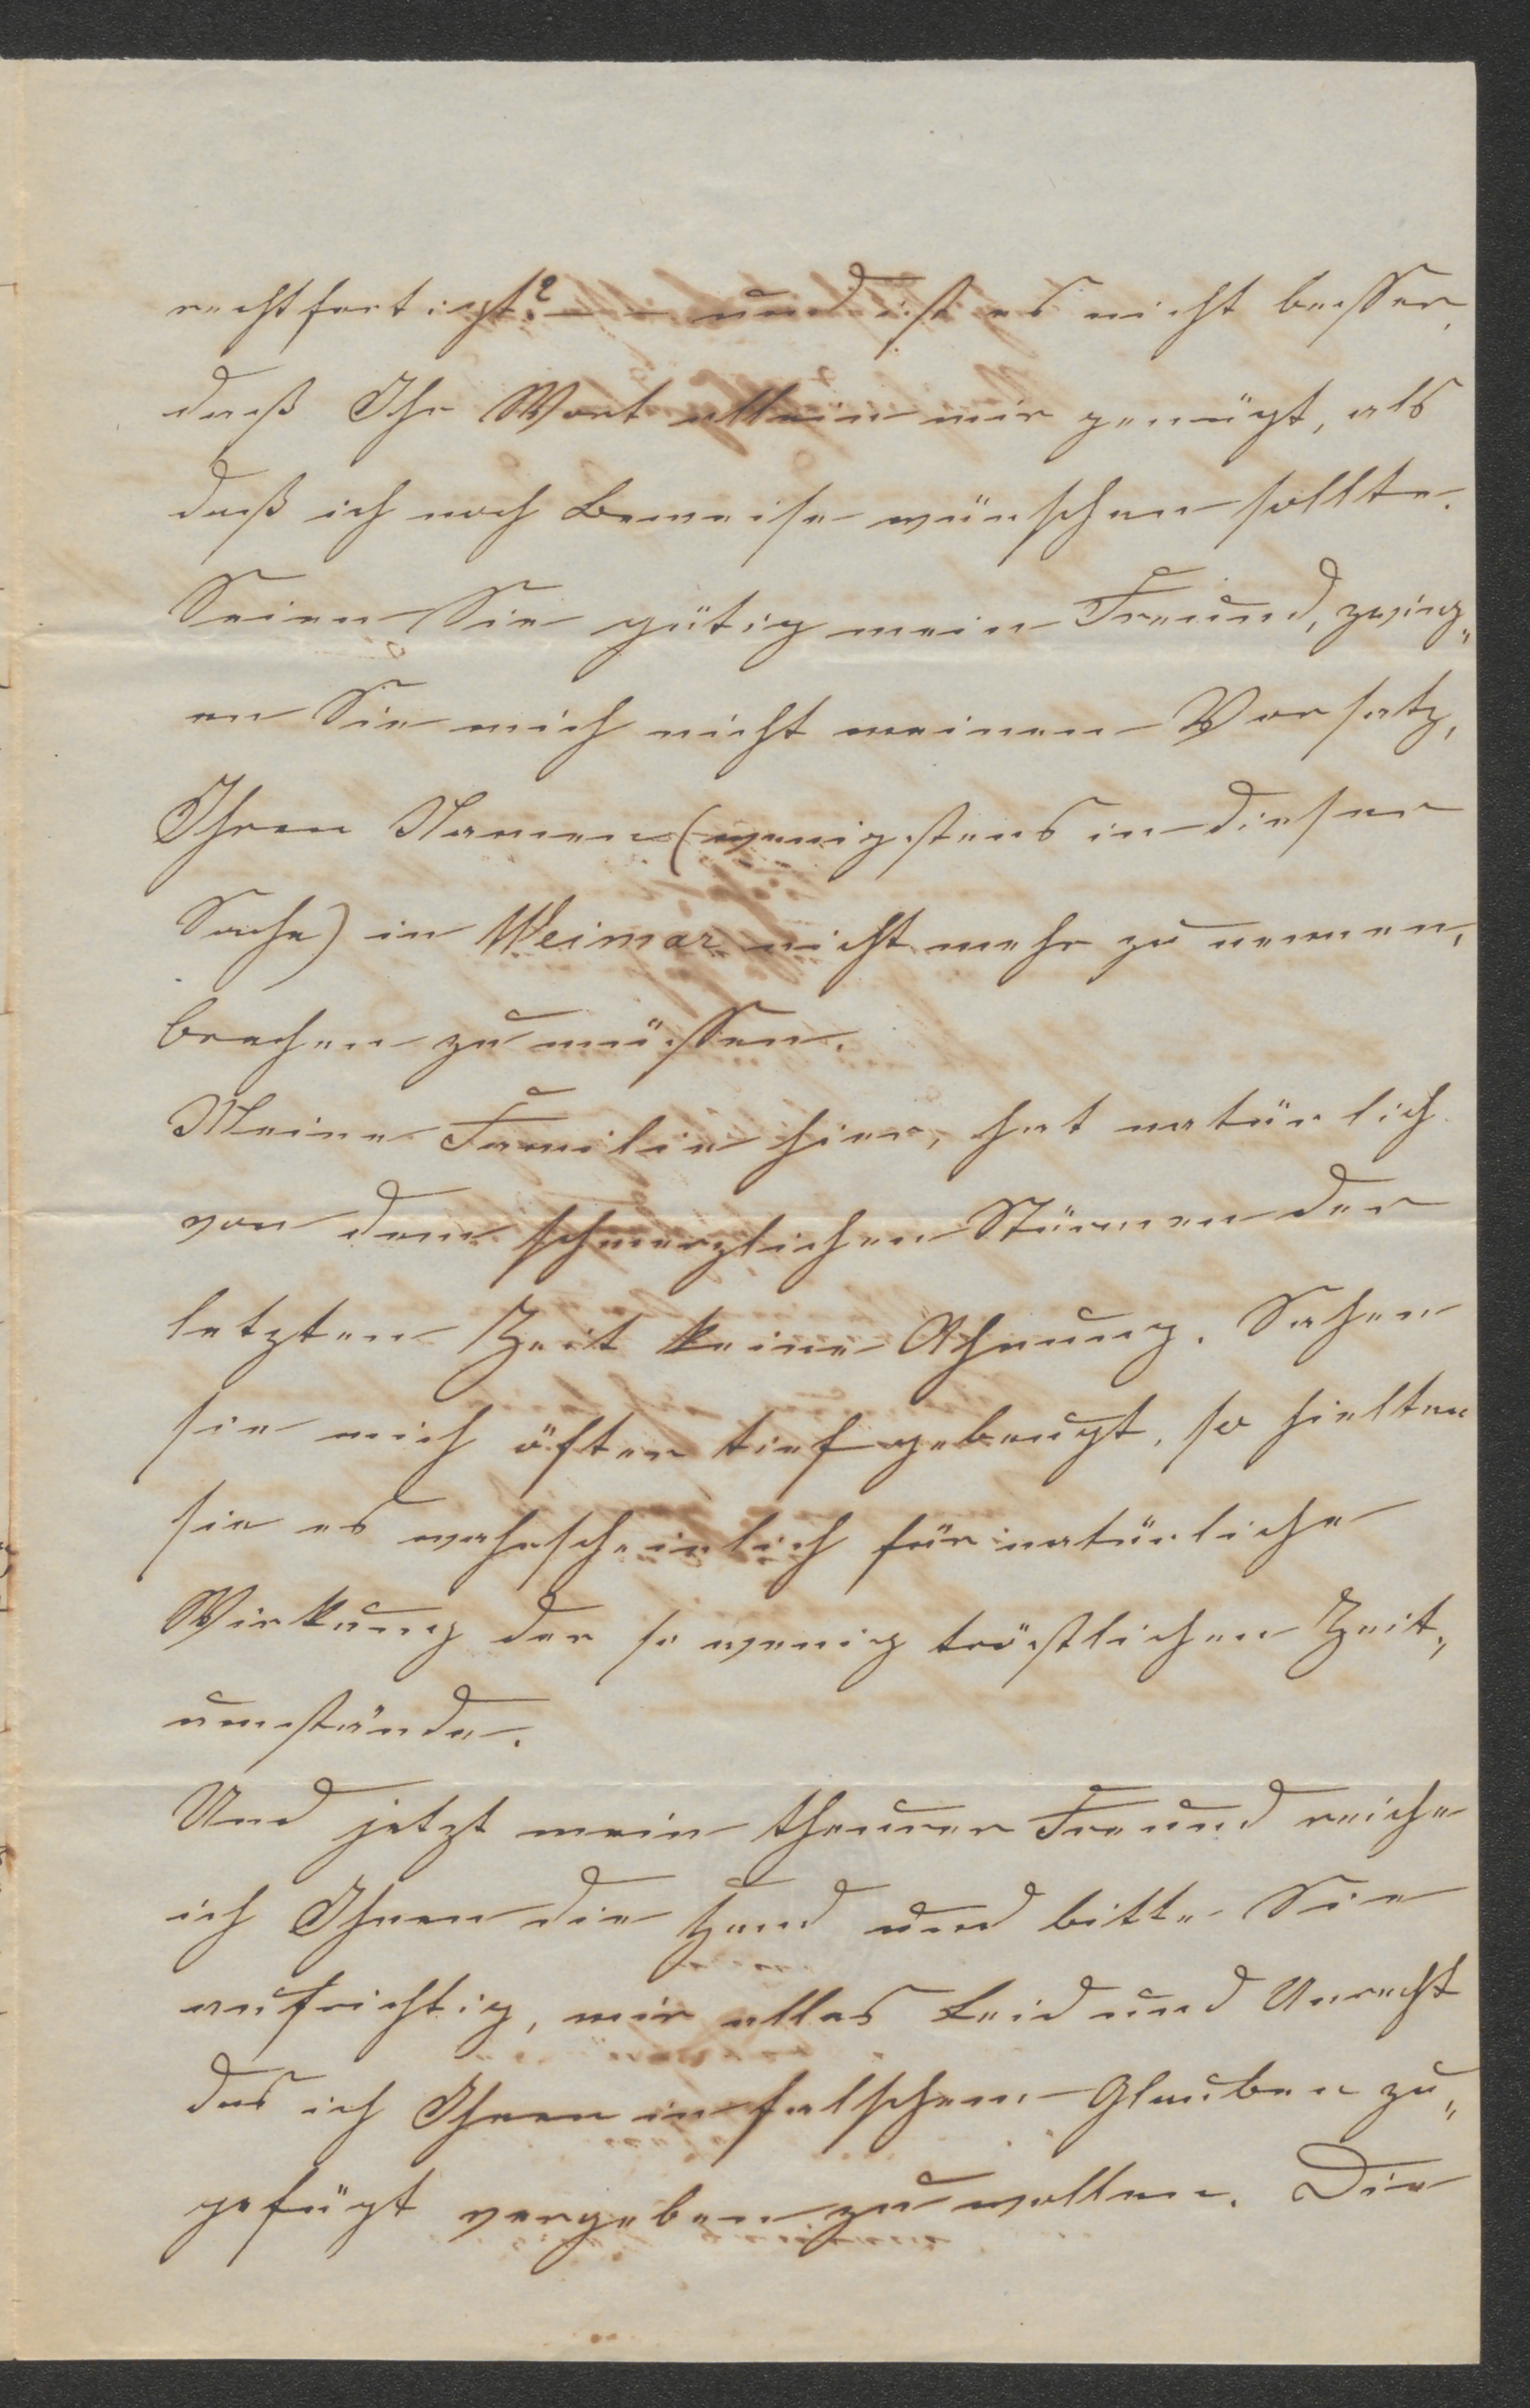 rechtfertigt? — — und ist es nicht besser,
daß Ihr Wort allein mir genügt, als
daß ich noch Beweise wünschen sollte.
Seien Sie gütig mein Freund, zwing„
en Sie mich nicht meinen Vorsatz,
Ihren Namen (wenigstens in dieser
Sache) in Weimar nicht mehr zu nennen,
brechen zu müssen.
Meine Familie hier, hat natürlich
von den schmerzlichen Stürmen der
letzten Zeit keine Ahnung. Sahen
sie mich öfter tief gebeugt, so hielten
sie es wahrscheinlich für natürliche
Wirkung der so wenig tröstlichen Zeit„
umstände.
Und jetzt mein theurer Freund reiche
ich Ihnen die Hand und bitte Sie
aufrichtig, mir alles Leid und Unrecht
das ich Ihnen in falschem Glauben zu„
gefügt vergeben zu wollen. Die